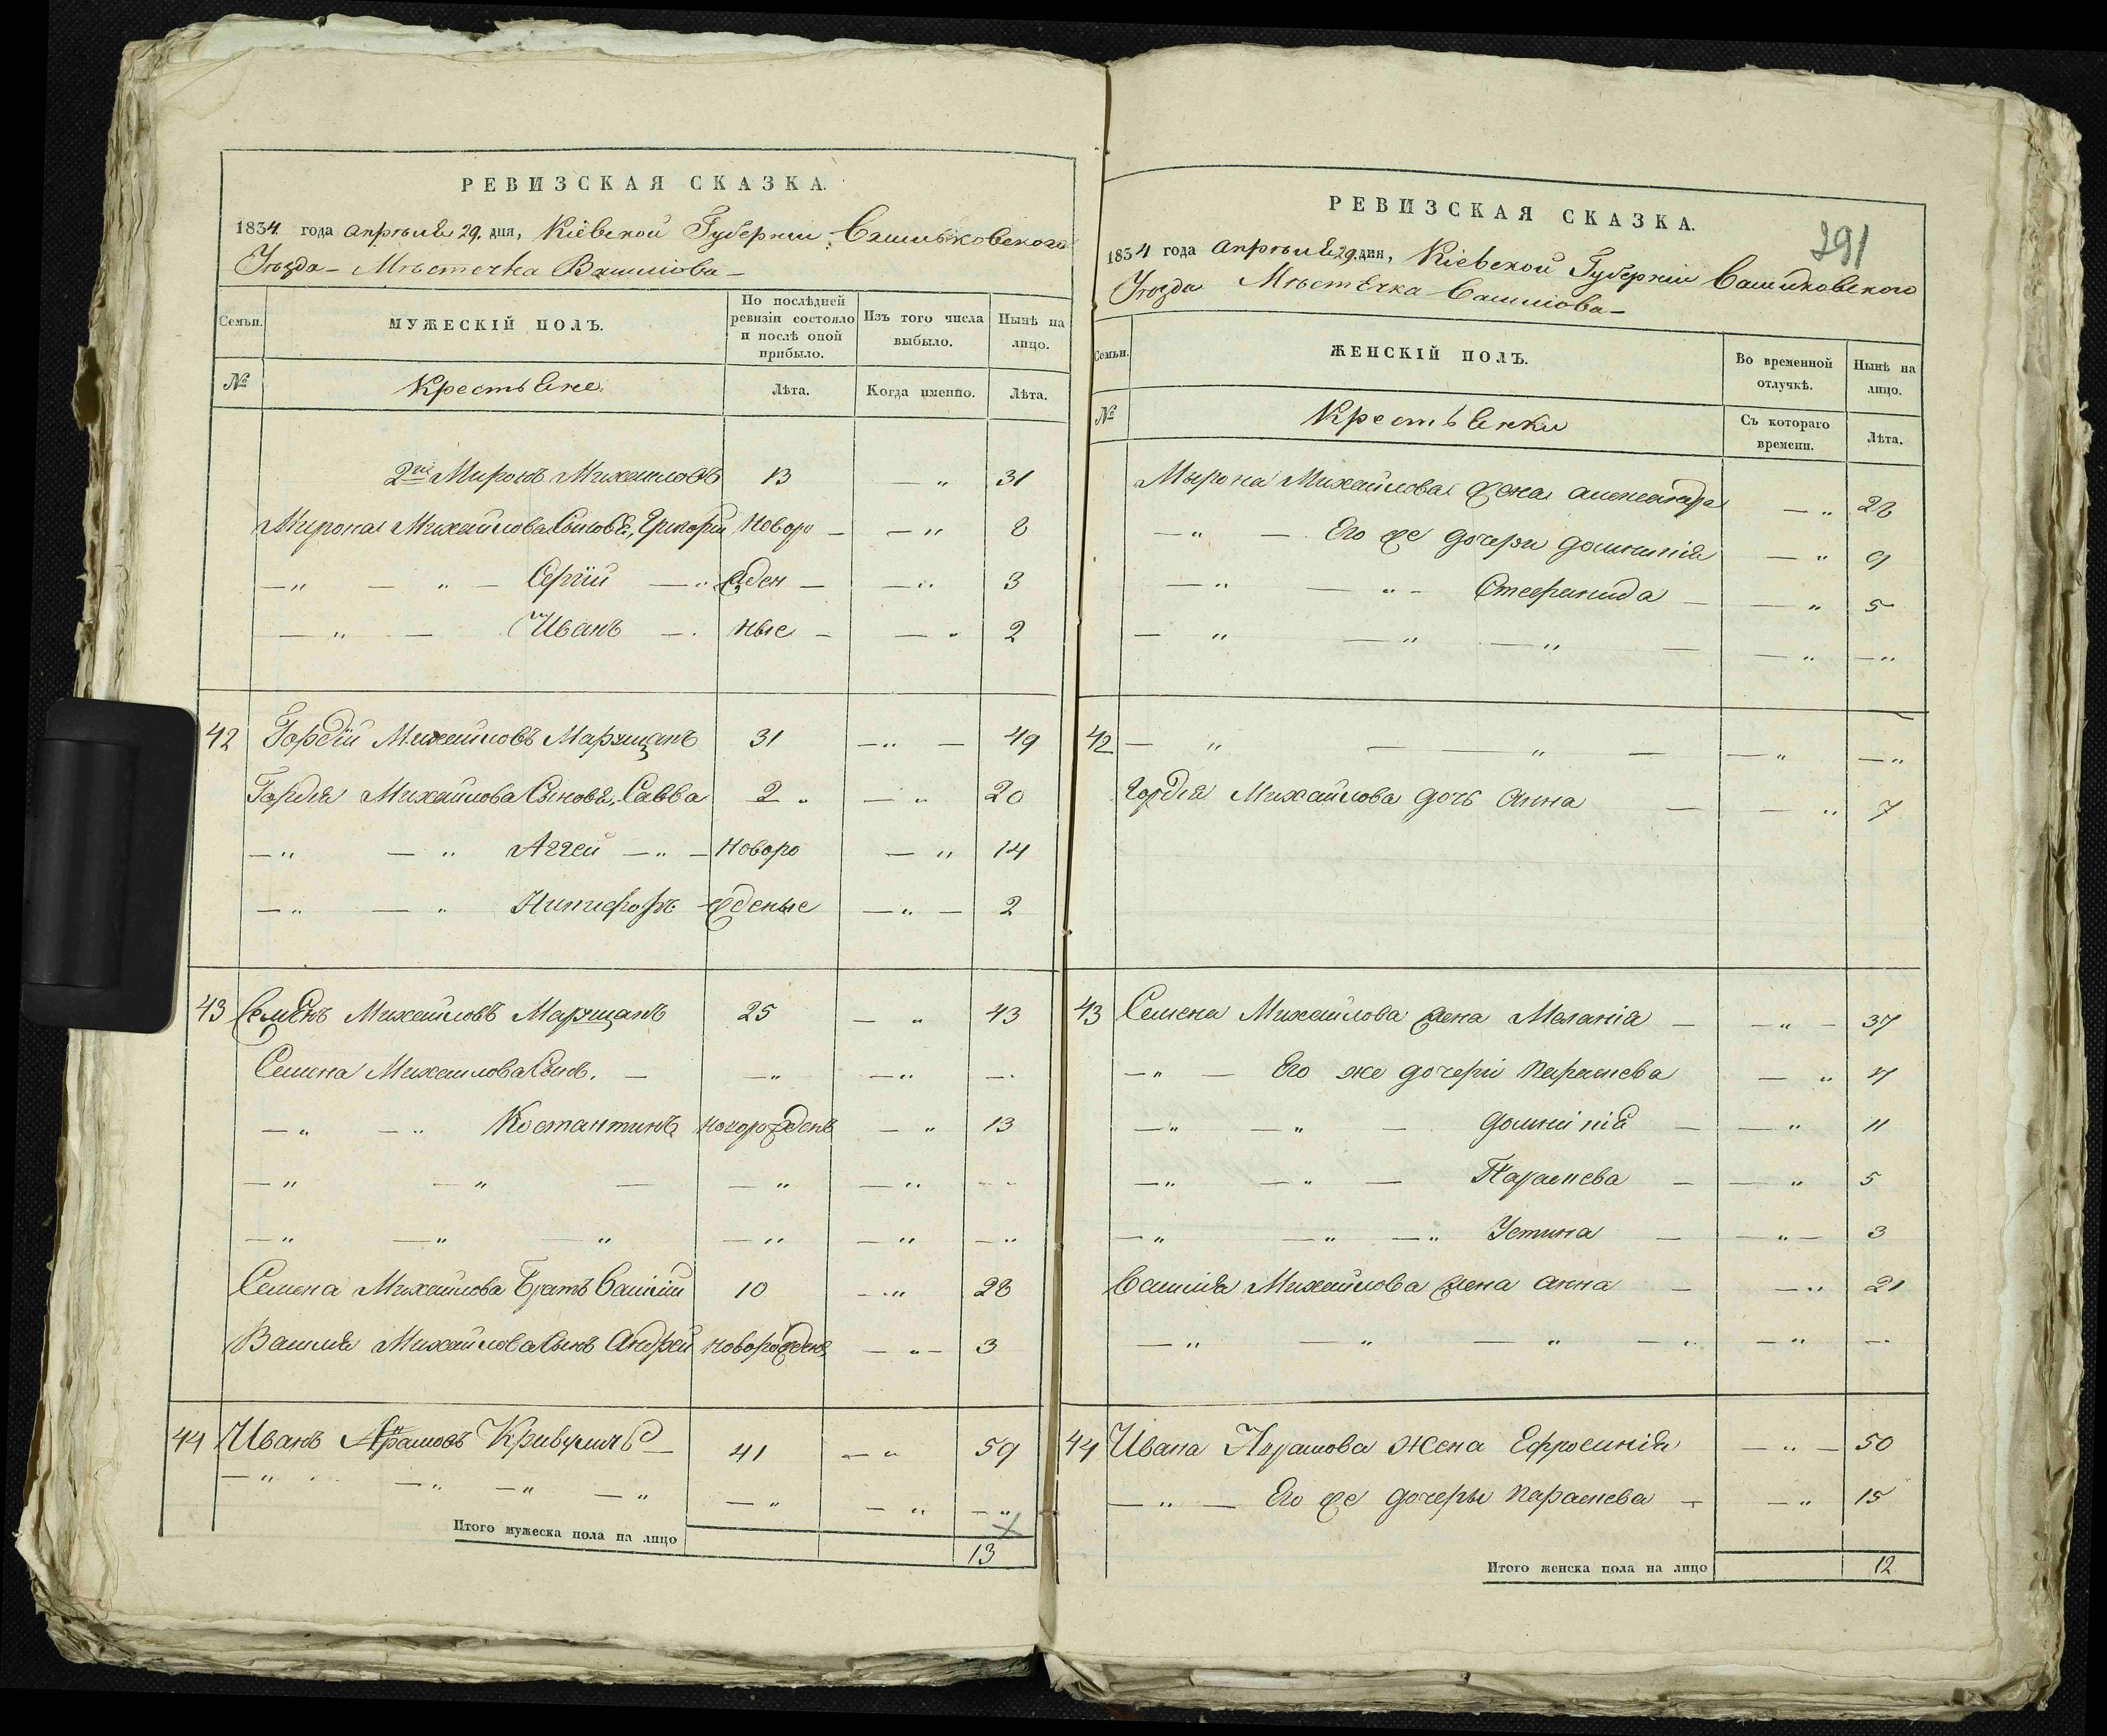 РЕВИЗСКАЯ СКАЗКА.
1834 года апрѣля 29. дня, Кіевской Губерніи, Васильковскаго
Уѣзда - Мѣстечка Василіова -
Семьи.
МУЖЕСКІЙ ПОЛЪ.
По послѣдней ревизіи состояло и послѣ оной прибыло.
Изъ того числа выбыло.
Нынѣ на лицо.
№
Крестьяне.
Лѣта.
Когда именно.
Лѣта.
2й Миронъ Михайловъ 13 — „ 31
Мирона Михайлова Сыновя, Григорій Новоро — — „ 8
— „ — „ — Сергій — „ жден — — „ 3
— „ — Иванъ — ные — — „ 2
42 Гордій Михайловъ Марущакъ 31 — „ — 49
Гордія Михайлова Сыновя, Савва 2 „ — „ 20
— „ — „ Аггей — „ — Новоро — „ 14
— „ — „ Никифоръ жденые — „ — 2
43 Семенъ Михайловъ Марущакъ 25 — „ 43
Семена Михайлова Сынъ. — — „ — „ —
— „ — „ Костантинъ новорожденъ — „ 13
— „ — „ — — „ — „ —
— „ — „ — „ — „ — „ — „
Семена Михайлова Братъ Василій 10 — „ 28
Василія Михайлова Сынъ Андрей новорожденъ — „ — 3
44 Иванъ Абрамовъ 41 — „ 59
— „ — „ — „ — „ — „ — „ — „
Итого мужеска пола на лицо 13
РЕВИЗСКАЯ СКАЗКА.
291
1834 года апрѣля 29. дня, Кіевской Губерніи Васильковскаго
Уѣзда Мѣстечка Василіова -
Семьи.
ЖЕНСКІЙ ПОЛЪ.
Во временной отлучкѣ.
Нынѣ на лицо.
№
Крестьянки
Съ котораго времени.
Лѣта.
Мырона Михайлова жена александра — „ 28
— „ — Его же дочери домникія — „ 9
— „ — „ — Стефанида — — „ 5
— „ — „ — „ — — „ — „
42 — „ — — „ — — „ — „
Гордія Михайлова дочь Анна — — „ 7
43 Семена Михайлова жена Меланія — — „ — 37
— „ — Его же дочери Параскева — „
— „ — „ — домникія — — „ 11
— „ — „ — Параскева — — „ 5
— „ — „ — „ Устина — — „ — 3
Василія Михайлова жена анна — — „ 21
— „ — „ — „ — „ — „ —
44 Ивана Абрамова жена Ефросинія — „ — 50
— „ — Его же дочеры Параскева — — „ 15
Итого женска пола на лицо 12